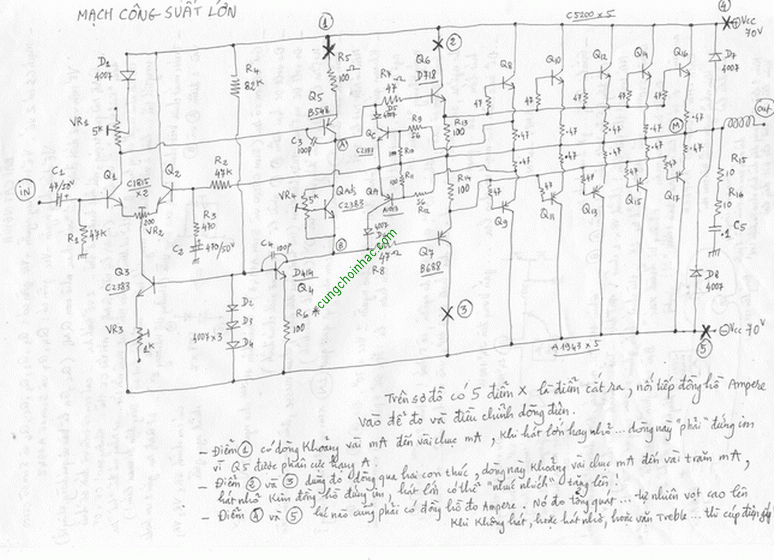 MẠCH CÔNG SUẤT LỚN
① ② ④
C5200 x 5
⊕Vcc
70V
D1
4007
R4
82K
R5
100
Q5
B548
R7
47
Q6
D718
Q8
Q10
Q12
Q14
Q16
D7
4007
VR1
5K
C3
100p
A
QC
C2383
R9
56
R13
100
47
47
47
47
47
.47
.47
.47
.47
.47
M
Out
C1
47/50V
IN
Q1
C1815
x2
Q2
R2
47K
VR4
5K
Qadj
C2383
QA
A1013
R12
56
R14
100
.47
.47
.47
.47
.47
R15
10
R16
10
C5
.1
R1
47K
VR2
R3
470
C2
470/50V
Q9
Q11
Q13
Q15
Q17
Q3
C2383
C4
100p
B
4007
47
R8
Q7
B688
D8
4007
VR3
1K
D2
D3
D4
4007x3
D414
Q4
R6
100
③
cungchoinhac.com
⊖Vcc 70V
A1943 x 5
⑤
Trên sơ đồ có 5 điểm X là điểm cắt ra, nối tiếp đồng hồ Ampere
vào để đo và điều chỉnh dòng điện.
- Điểm ① có dòng khoảng vài mA đến vài chục mA, khi hát lớn hay nhỏ... dòng này "phải" đứng im
vì Q5 được phân cực hạng A.
- Điểm ② và ③ dùng đo dòng qua hai con thúc, dòng này khoảng vài chục mA đến vài trăm mA,
hát nhỏ kim đồng hồ đứng im, hát lớn có thể "nhúc nhích" tăng lên!
- Điểm ④ và ⑤ lúc nào cũng phải có đồng hồ đo Ampere. Nó đo tổng quát... tự nhiên vọt cao lên
khi không hát, hoặc hát nhỏ, hoặc vặn Treble... thì cúp điện